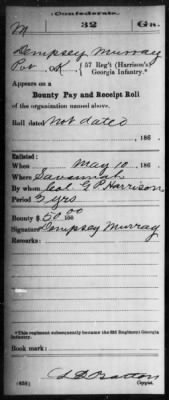 Confederate.
M 32 Ga.
Dempsey Murray
Pvt, Co. K, 57 Reg't (Harrison's) Georgia Infantry.*
Appears on a
Bounty Pay and Receipt Roll
of the organization named above.
Roll dated Not dated
, 186 .
Enlisted:
When May 10, 186 .
Where Savannah
By whom Col. G P Harrison
Period 3 yrs
Bounty $ 50 00/100
Signature Dempsey Murray
Remarks:
*This regiment subsequently became the 32d Regiment Georgia
Infantry.
Book mark:
Copyist.